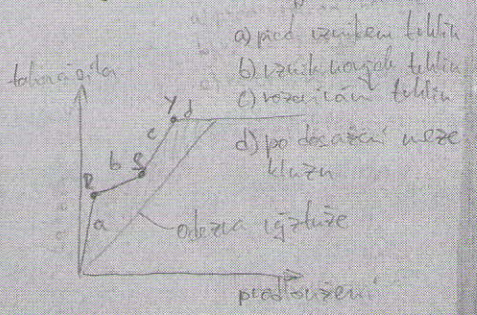 a) před vznikem trhlin
b) vznik nových trhlin
c) rozevírání trhlin
d) po dosažení meze
kluzu
tahová síla
Y
d
c
S
b
R
a
odezva výztuže
prodloužení